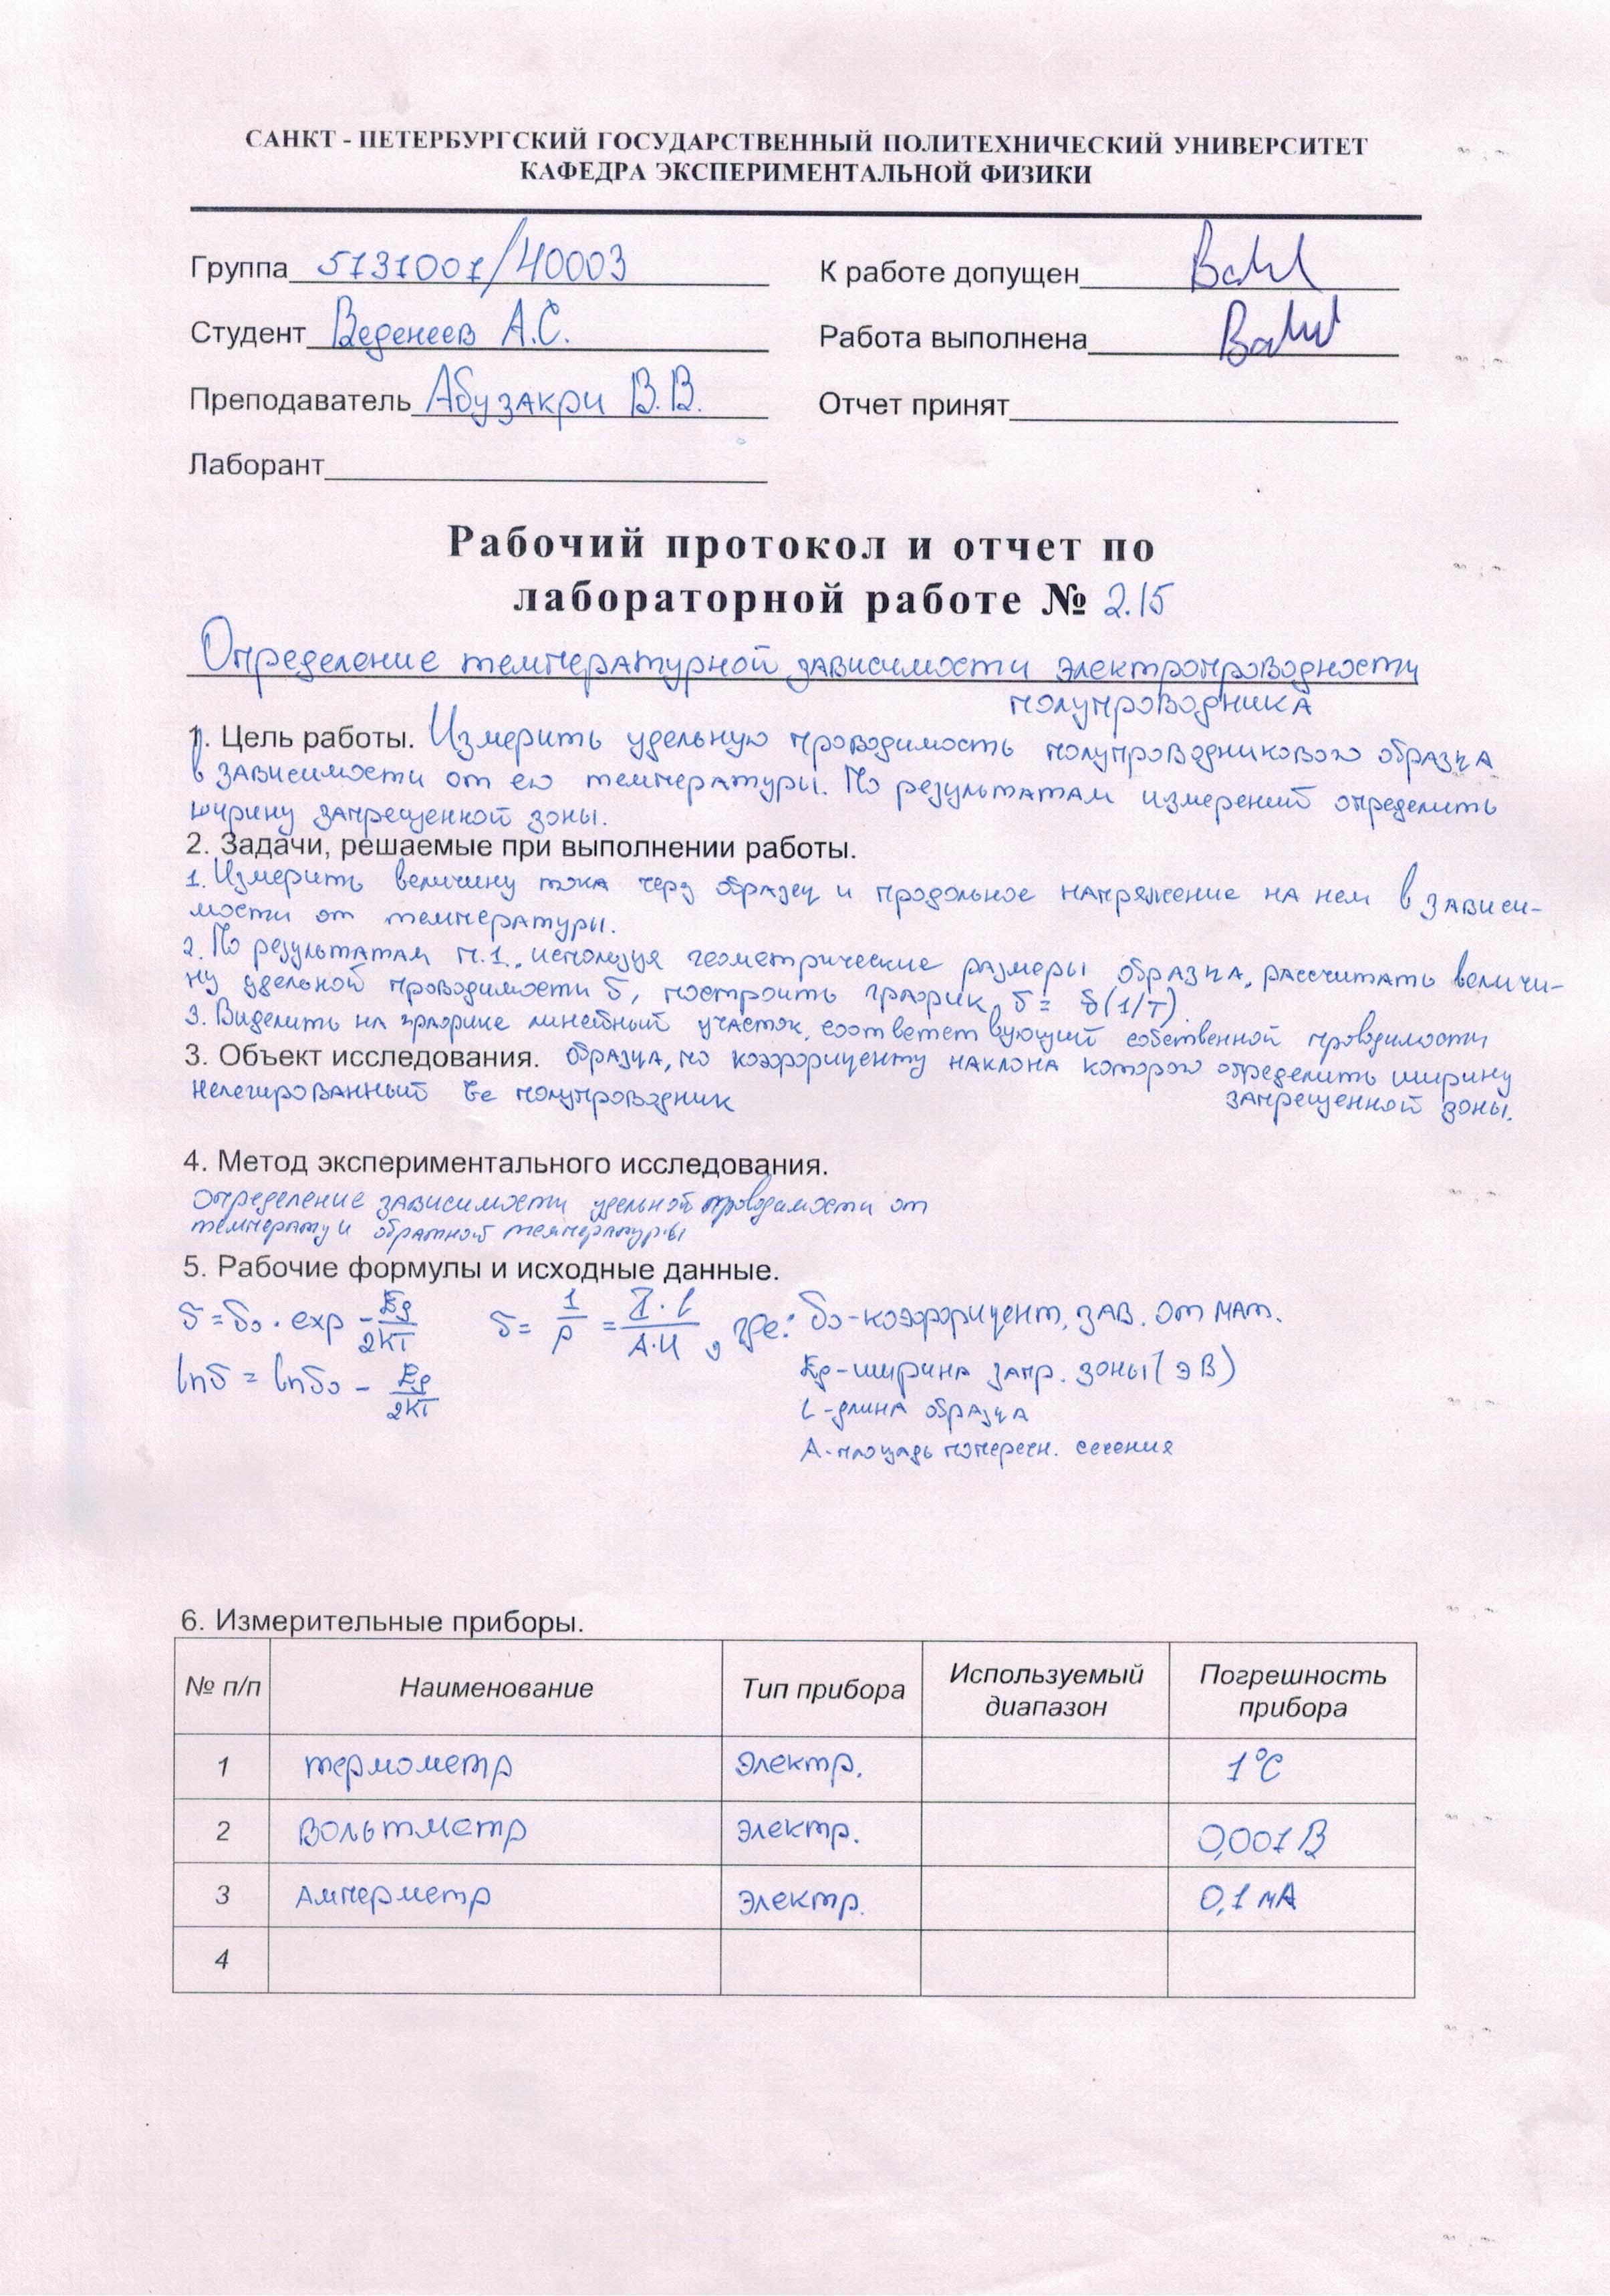 САНКТ - ПЕТЕРБУРГСКИЙ ГОСУДАРСТВЕННЫЙ ПОЛИТЕХНИЧЕСКИЙ УНИВЕРСИТЕТ
КАФЕДРА ЭКСПЕРИМЕНТАЛЬНОЙ ФИЗИКИ
Группа 5131001/40003 К работе допущен
Студент Веденеев А.С. Работа выполнена
Преподаватель Абузакри В.В. Отчет принят
Лаборант
Рабочий протокол и отчет по
лабораторной работе № 2.15
Определение температурной зависимости электропроводности
полупроводника
1. Цель работы. Измерить удельную проводимость полупроводникового образца
в зависимости от его температуры. По результатам измерений определить
ширину запрещенной зоны.
2. Задачи, решаемые при выполнении работы.
1. Измерить величину тока через образец и продольное напряжение на нем в зависи-
мости от температуры.
2. По результатам п.1., используя геометрические размеры образца, рассчитать величи-
ну удельной проводимости σ, построить график σ = σ(1/T)
3. Выделить на графике линейный участок, соответствующий собственной проводимости
3. Объект исследования. образца, по коэффициенту наклона которого определить ширину
нелегированный Ge полупроводник запрещенной зоны.
4. Метод экспериментального исследования.
Определение зависимости удельной проводимости от
температу и обратной температуры
5. Рабочие формулы и исходные данные.
σ = σ₀ · exp -Eg/2kT σ = 1/ρ = I·l/A·U, где: σ₀-коэффициент, зав. от мат.
lnσ = lnσ₀ - Eg/2kT Eg-ширина запр. зоны (эВ)
L-длина образца
A-площадь поперечн. сечения
6. Измерительные приборы.
№ п/п Наименование Тип прибора Используемый диапазон Погрешность прибора
1 термометр электр. 1°C
2 Вольтметр электр. 0,001 В
3 Амперметр электр. 0,1 мА
4